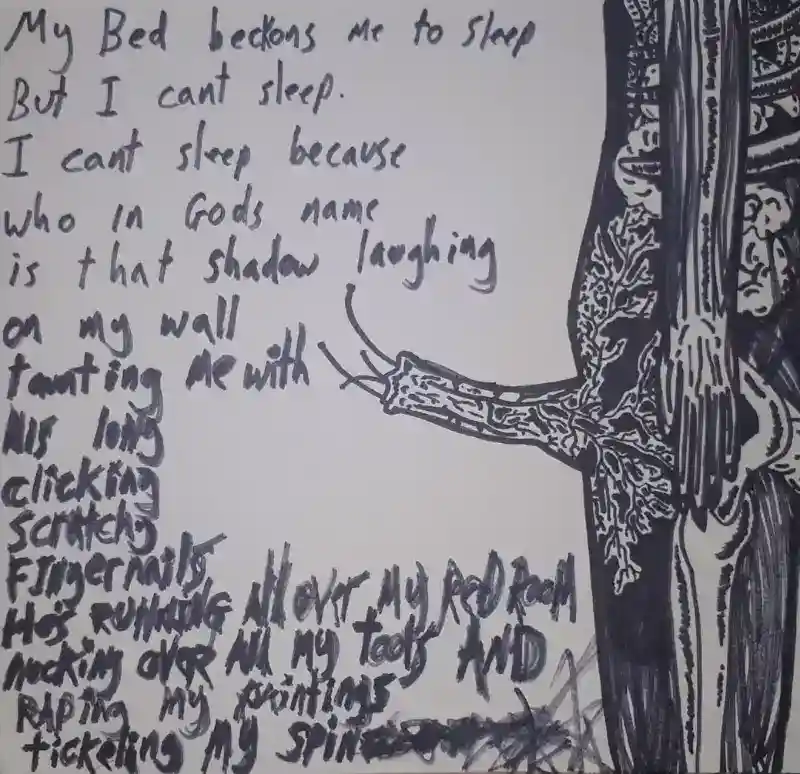 My Bed beckons me to sleep
But I cant sleep.
I cant sleep because
who in Gods name
is that shadow laughing
on my wall
taunting me with
his long
clicking
scratchy
Fingernails
He's RUNNING All over My BedRooM
nocking over All my tools AND
RAPing My paintings
tickeling My spine